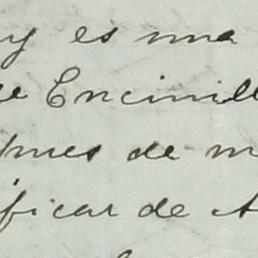 y es una
de Encinill
pues de m
ificar de A